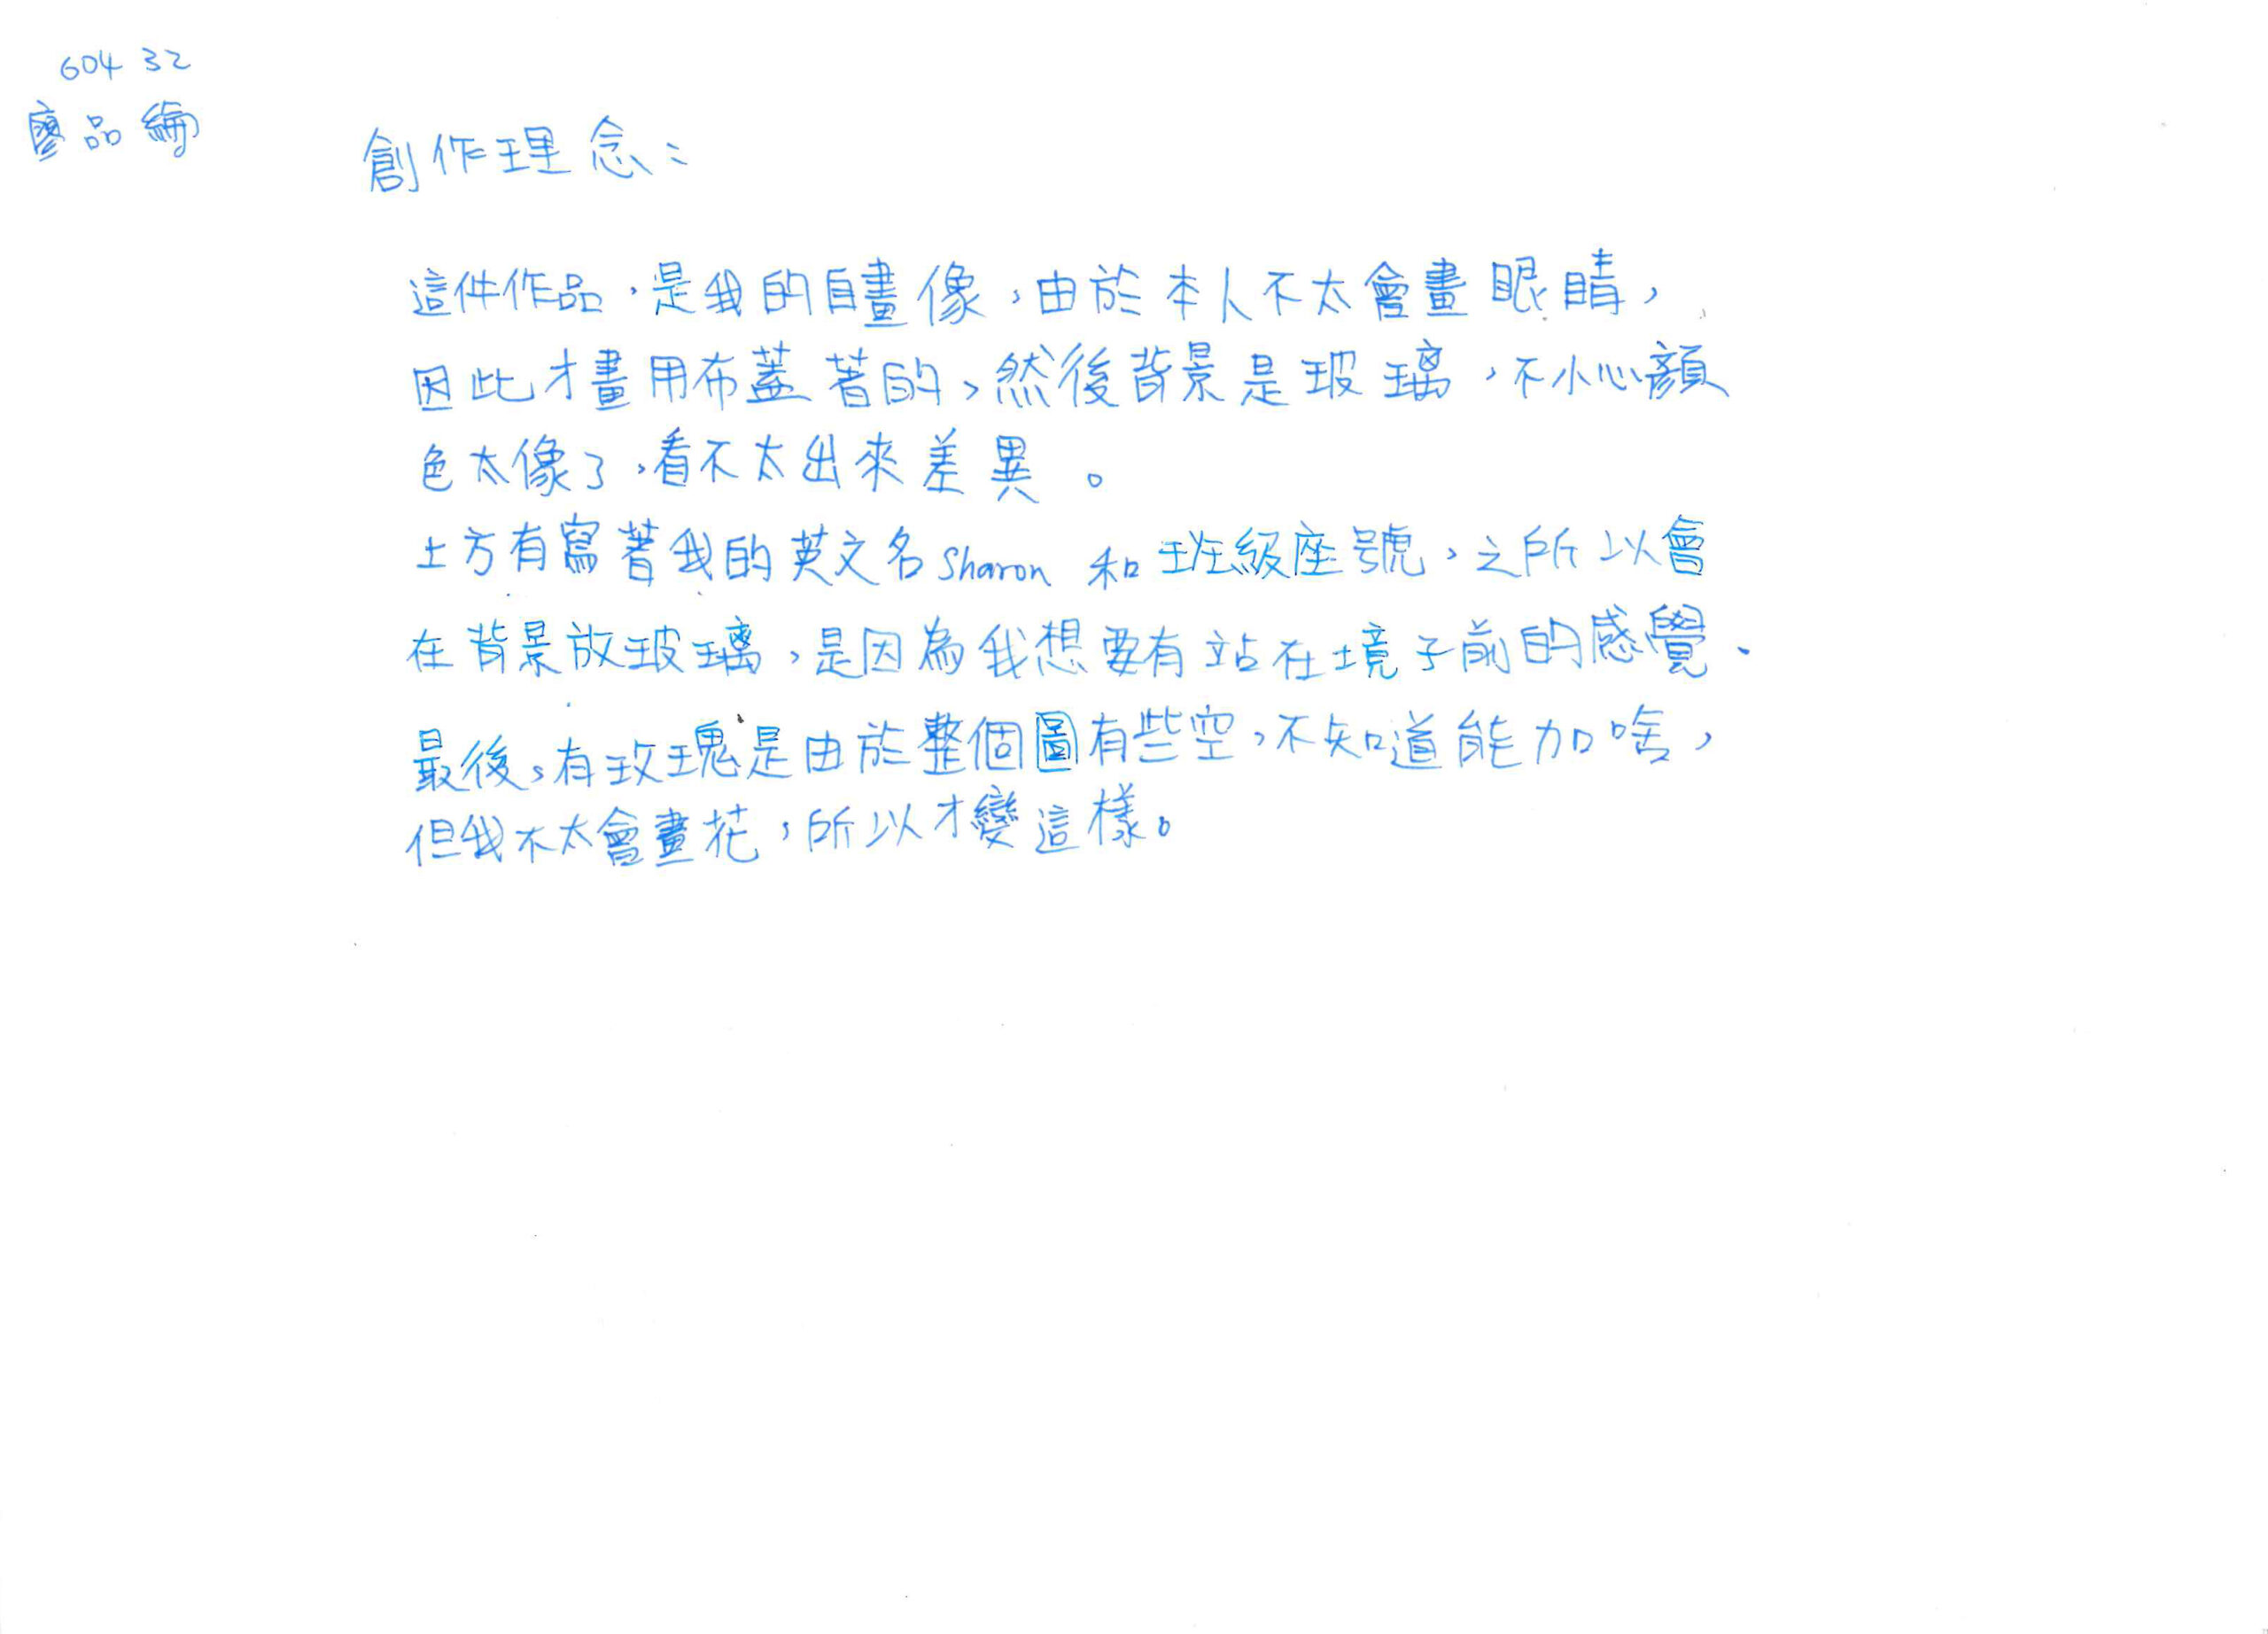 604 32
廖品綸
創作理念：
這件作品，是我的自畫像，由於本人不太會畫眼睛，
因此才畫用布蓋著的，然後背景是玻璃，不小心顏
色太像了，看不太出來差異。
上方有寫著我的英文名Sharon 和班級座號，之所以會
在背景放玻璃，是因為我想要有站在境子前的感覺、
最後，有玫瑰是由於整個圖有些空，不知道能加啥，
但我不太會畫花，所以才變這樣。